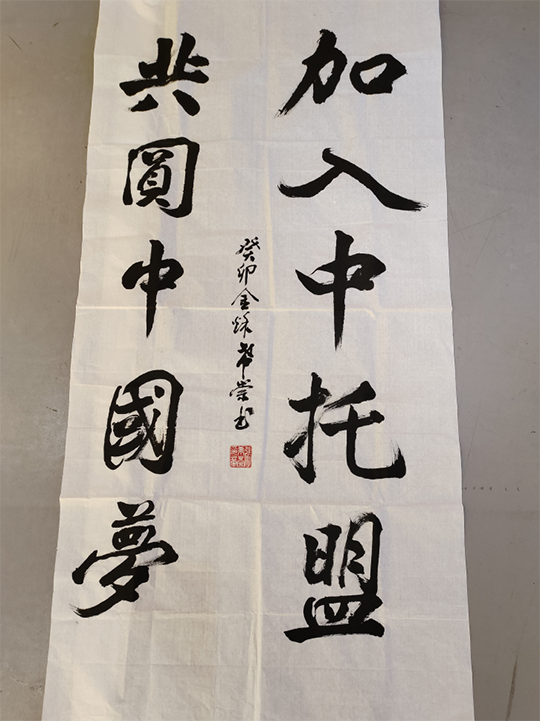 加入中托盟
共圓中國夢
癸卯金秋希崇书